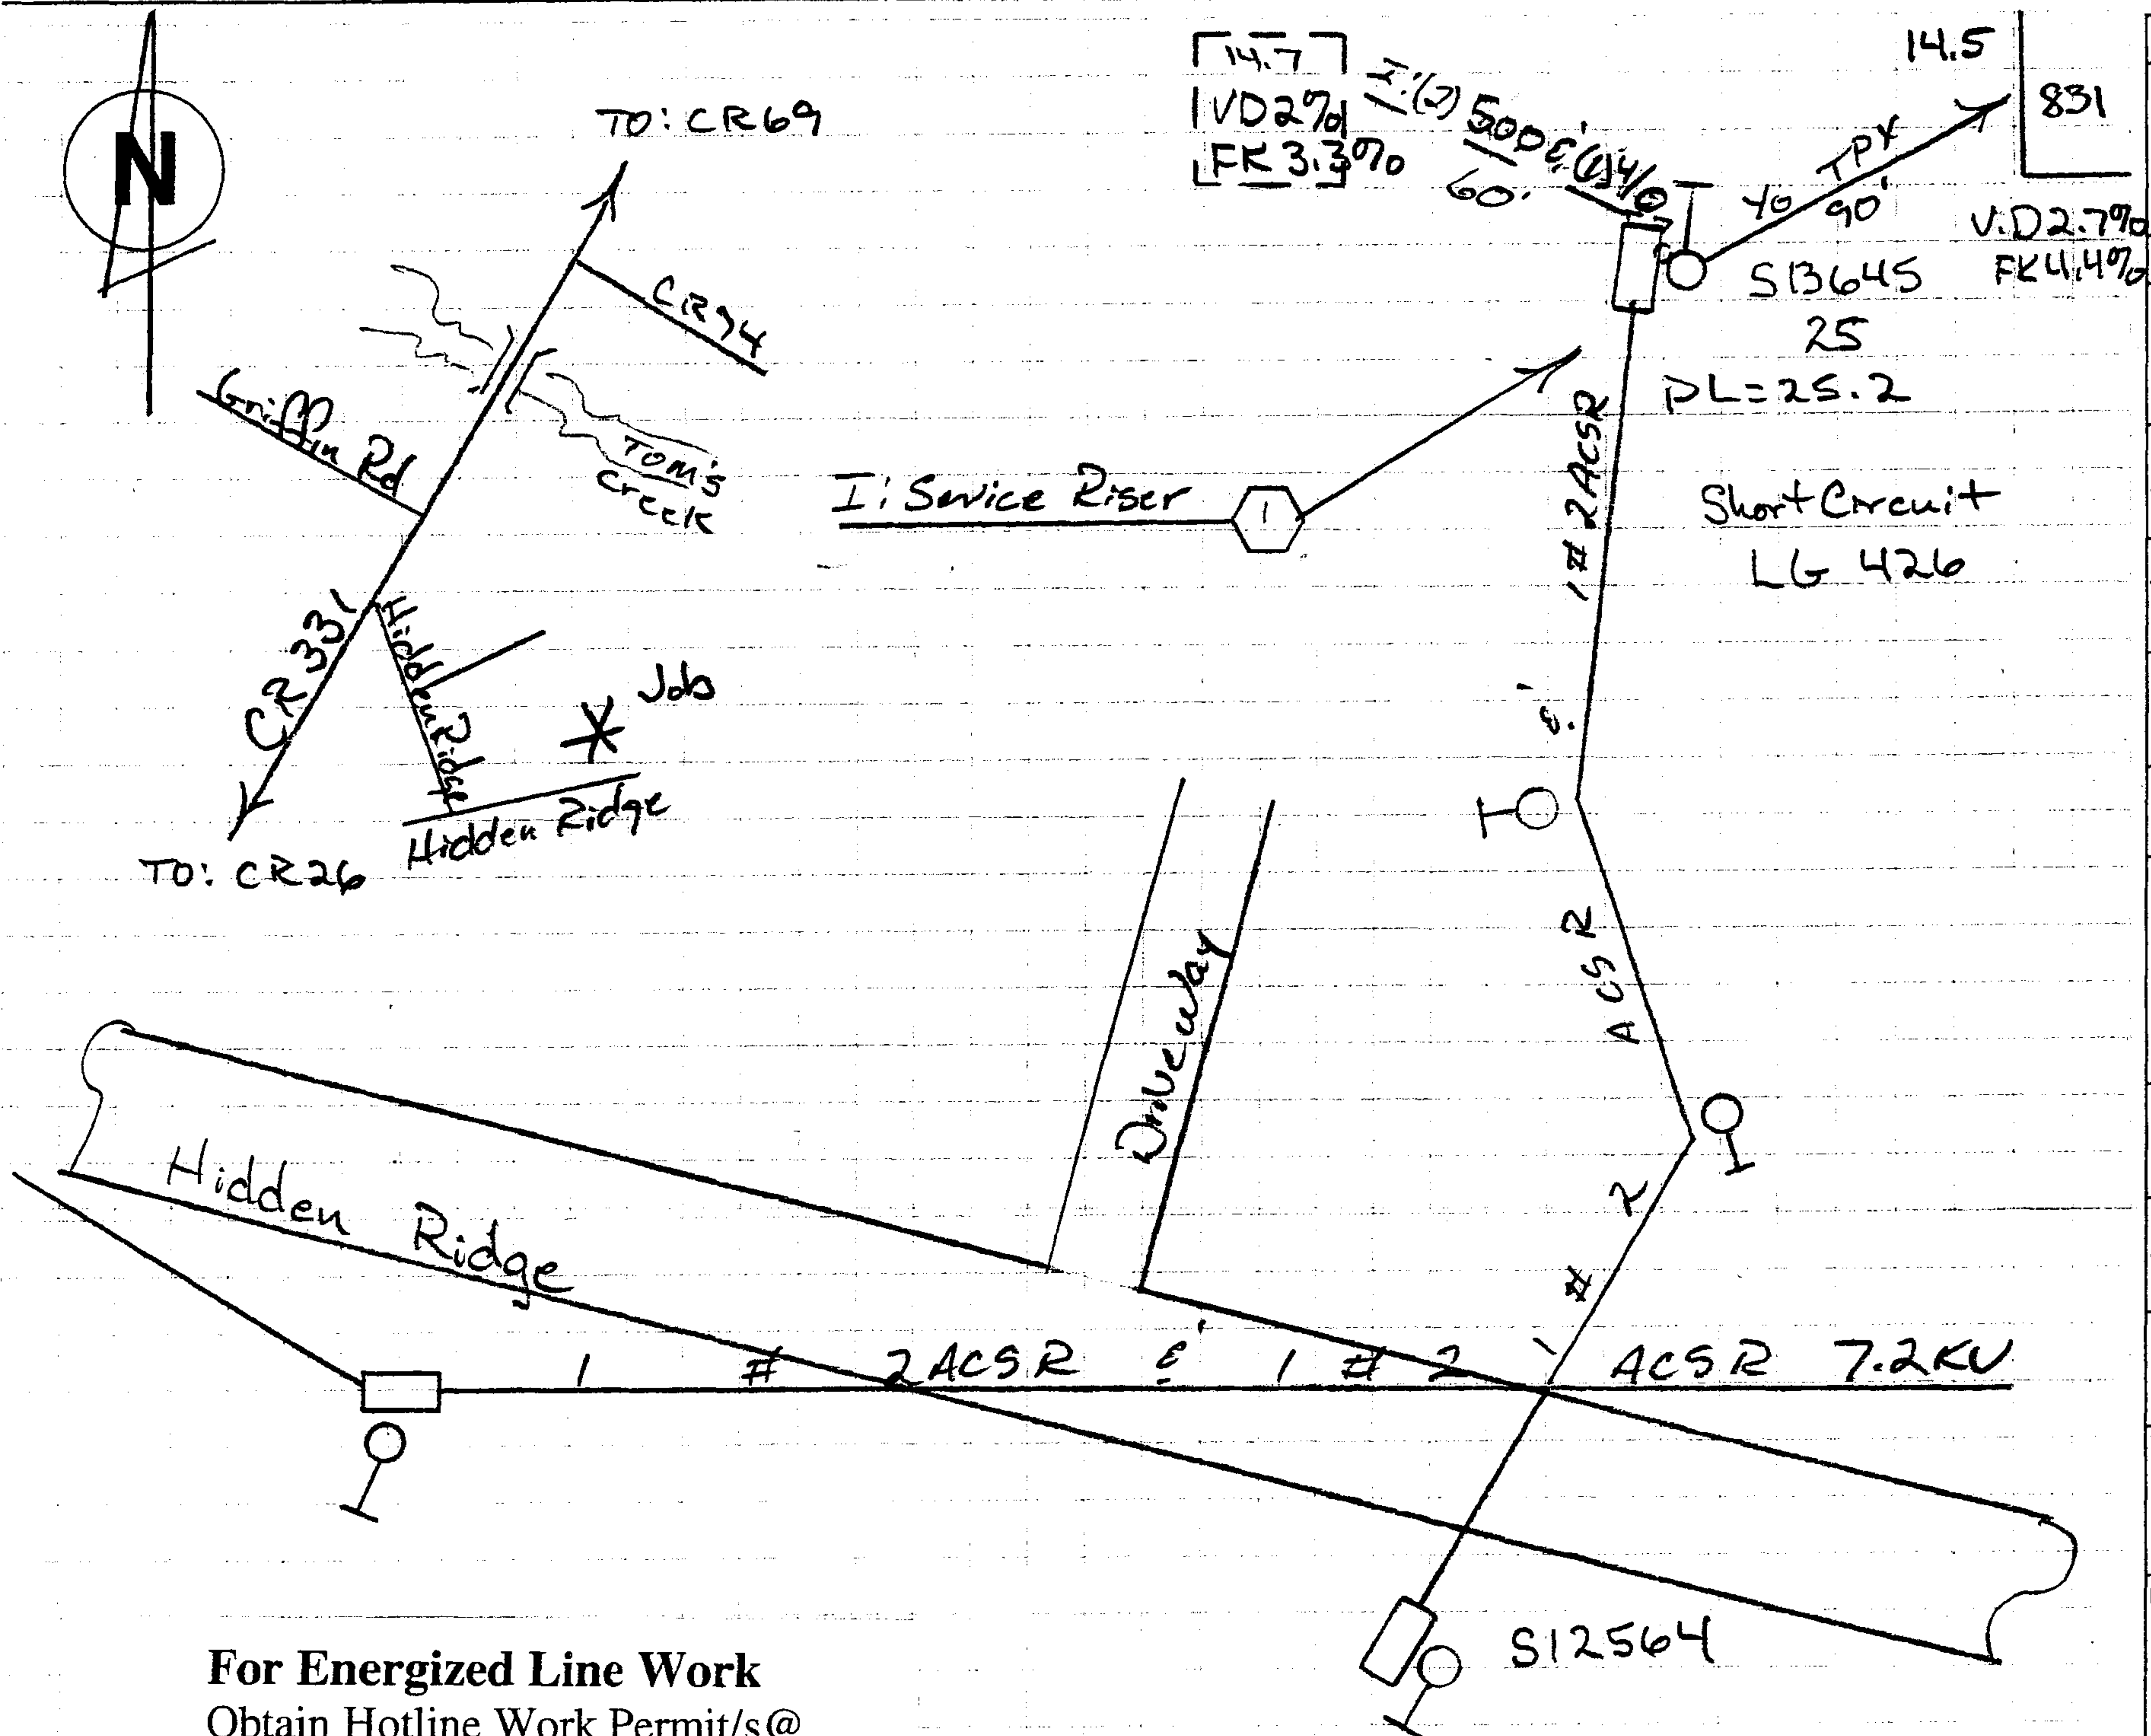 N
TO: CR69
CR94
Griffin Rd
Tom's
Creek
CR 331
Hidden Ridge
Job
Hidden Ridge
TO: CR26
14.7
VD2%
FK 3.3%
I:(2) 500' & (1) 4/0
60'
14.5
831
4/0 TPX
90'
V.D 2.7%
FK 4.4%
S13645
25
PL=25.2
I: Service Riser
1
Short Circuit
LG 426
1 # 2 ACSR & 1 # 2 ACSR
Driveway
Hidden Ridge
1 # 2 ACSR & 1 # 2 ACSR 7.2KV
S12564
For Energized Line Work
Obtain Hotline Work Permit/s@